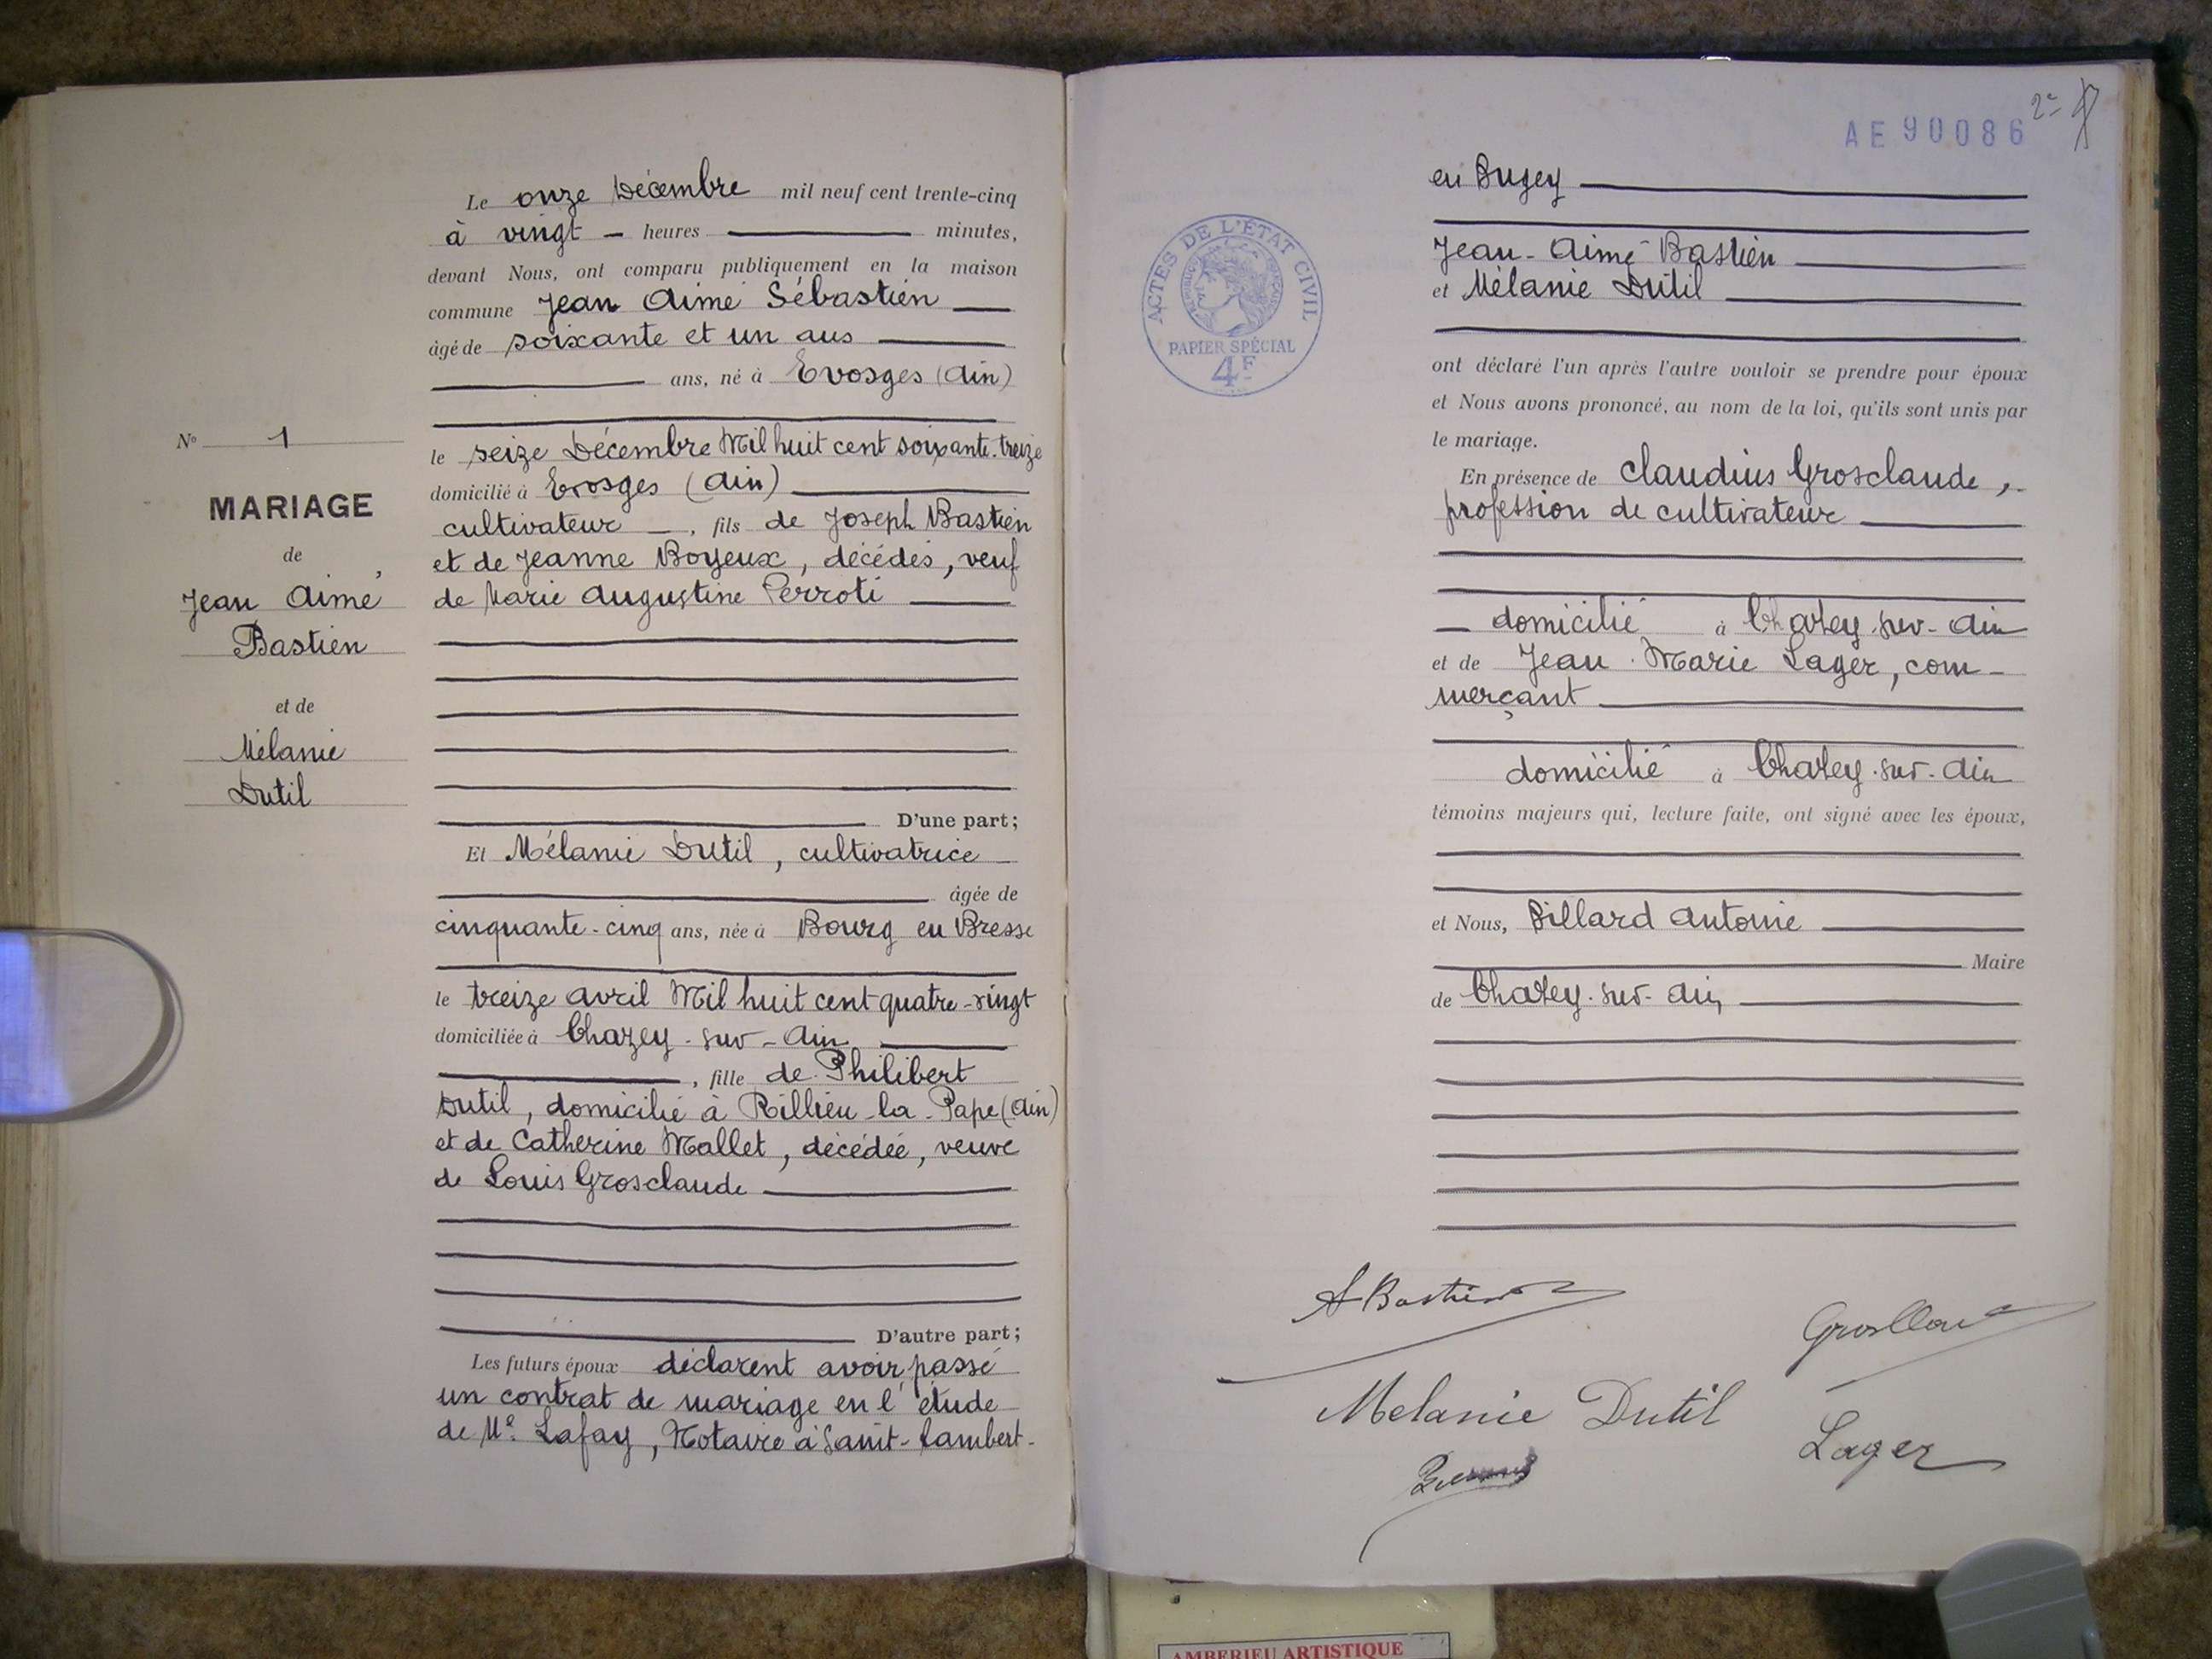 Le onze Décembre mil neuf cent trente-cinq
à vingt - heures minutes,
devant Nous, ont comparu publiquement en la maison
commune Jean Aimé Sébastien
âgé de soixante et un ans
ans, né à Evosges (Ain)
le seize Décembre Mil huit cent soixante-treize
domicilié à Evosges (Ain)
cultivateur, fils de Joseph Bastien
et de Jeanne Boyeux, décédés, veuf
de Marie Augustine Perroti
D'une part;
Et Mélanie Dutil, cultivatrice
âgée de
cinquante-cinq ans, née à Bourg en Bresse
le treize avril Mil huit cent quatre-vingt
domiciliée à Chazey-sur-Ain
, fille de Philibert
Dutil, domicilié à Rillieu-la-Pape (Ain)
et de Catherine Mallet, décédée, veuve
de Louis Grosclaude
D'autre part;
Les futurs époux déclarent avoir passé
un contrat de mariage en l'étude
de Me. Lafay, Notaire à Saint-Rambert-
No 1
MARIAGE
de
Jean Aimé
Bastien
et de
Mélanie
Dutil
AE 90086
2e
ACTES DE L'ÉTAT CIVIL
RÉPUBLIQUE FRANÇAISE
PAPIER SPÉCIAL
4F
en Bugey
Jean-Aimé Bastien
et Mélanie Dutil
ont déclaré l'un après l'autre vouloir se prendre pour époux
et Nous avons prononcé, au nom de la loi, qu'ils sont unis par
le mariage.
En présence de Claudius Grosclaude,
profession de cultivateur
domicilié à Chazey-sur-Ain
et de Jean-Marie Lager, com-
merçant
domicilié à Chazey-sur-Ain
témoins majeurs qui, lecture faite, ont signé avec les époux,
et Nous, Billard Antoine
Maire
de Chazey-sur-Ain
A Bastien
Melanie Dutil
Lager
AMBERIEU ARTISTIQUE